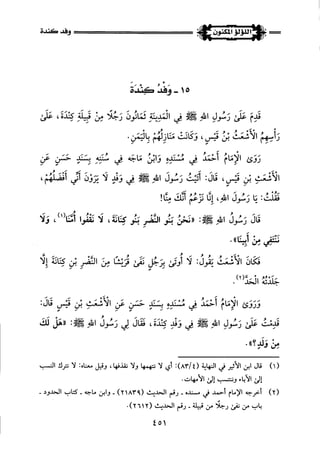 اللؤلؤ المكنون
وفد كندة
١٥ - وَفْدُ كِنْدَةَ
قَدِمَ عَلَى رَسُولِ اللهِ ﷺ فِي الْمَدِينَةِ ثَمَانُونَ رَجُلًا مِنْ قَبِيلَةِ كِنْدَةَ، عَلَى
رَأْسِهِمُ الْأَشْعَثُ بْنُ قَيْسٍ، وَكَانَتْ مَنَازِلُهُمْ بِالْيَمَنِ.
رَوَى الْإِمَامُ أَحْمَدُ فِي مُسْنَدِهِ وَابْنُ مَاجَه فِي سُنَنِهِ بِسَنَدٍ حَسَنٍ عَنِ
الْأَشْعَثِ بْنِ قَيْسٍ، قَالَ: أَتَيْتُ رَسُولَ اللهِ ﷺ فِي وَفْدٍ لَا يَرَوْنَ أَنِّي أَفْضَلُهُمْ،
فَقُلْتُ: يَا رَسُولَ اللهِ، إِنَّا نَزْعُمُ أَنَّكَ مِنَّا!
قَالَ رَسُولُ اللهِ ﷺ: «نَحْنُ بَنُو النَّضْرِ بْنِ كِنَانَةَ، لَا نَقْفُوا أُمَّنَا(١)، وَلَا
نَنْتَفِي مِنْ أَبِينَا».
فَكَانَ الْأَشْعَثُ يَقُولُ: لَا أُوتَى بِرَجُلٍ نَفَى قُرَيْشًا مِنَ النَّضْرِ بْنِ كِنَانَةَ إِلَّا
جَلَدْتُهُ الْحَدَّ(٢).
وَرَوَى الْإِمَامُ أَحْمَدُ فِي مُسْنَدِهِ بِسَنَدٍ حَسَنٍ عَنِ الْأَشْعَثِ بْنِ قَيْسٍ قَالَ:
قَدِمْتُ عَلَى رَسُولِ اللهِ ﷺ فِي وَفْدِ كِنْدَةَ، فَقَالَ لِي رَسُولُ اللهِ ﷺ: «هَلْ لَكَ
مِنْ وَلَدٍ؟».
(١) قال ابن الأثير في النهاية (٨٣/٤): أي لا نتهمها ولا نقذفها، وقيل: معناه لا نترك النسب
إلى الآباء وننتسب إلى الأمهات.
(٢) أخرجه الإمام أحمد في مسنده - رقم الحديث (٢١٨٣٩) - وابن ماجه - كتاب الحدود -
باب من نفى رجلًا من قبيلة - رقم الحديث (٢٦١٢).
٤٥١